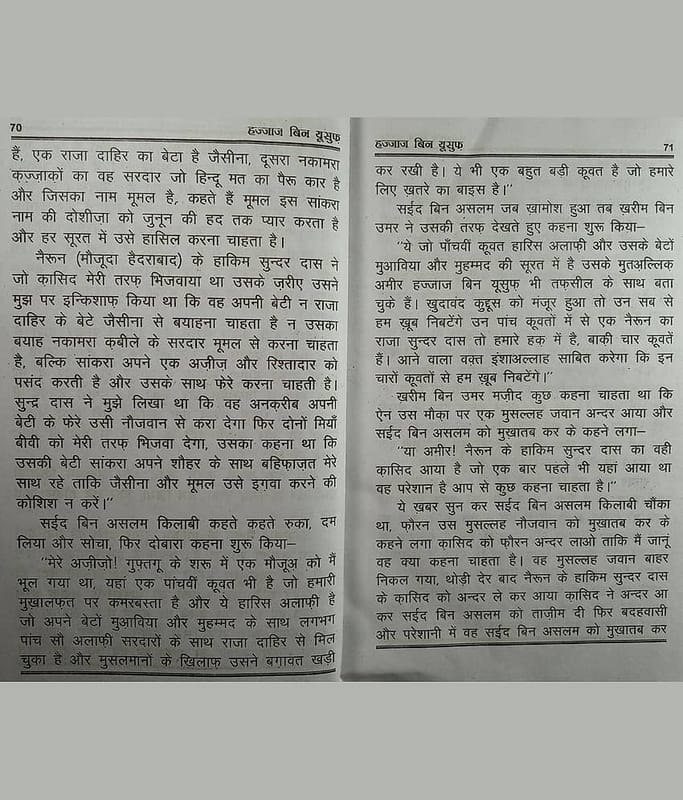 70
हज्जाज बिन यूसुफ़
हैं, एक राजा दाहिर का बेटा है जैसीना, दूसरा नकामरा
कज़्ज़ाकों का वह सरदार जो हिन्दू मत का पैरू कार है
और जिसका नाम मूमल है, कहते हैं मूमल इस सांकरा
नाम की दोशीज़ा को जुनून की हद तक प्यार करता है
और हर सूरत में उसे हासिल करना चाहता है।
नैरून (मौजूदा हैदराबाद) के हाकिम सुन्दर दास ने
जो क़ासिद मेरी तरफ़ भिजवाया था उसके ज़रीए उसने
मुझ पर इन्किशाफ़ किया था कि वह अपनी बेटी न राजा
दाहिर के बेटे जैसीना से बयाहना चाहता है न उसका
बयाह नकामरा क़बीले के सरदार मूमल से करना चाहता
है, बल्कि सांकरा अपने एक अज़ीज़ और रिश्तादार को
पसंद करती है और उसके साथ फेरे करना चाहती है।
सुन्द्र दास ने मुझे लिखा था कि वह अनक़रीब अपनी
बेटी के फेरे उसी नौजवान से करा देगा फिर दोनों मियाँ
बीवी को मेरी तरफ़ भिजवा देगा, उसका कहना था कि
उसकी बेटी सांकरा अपने शौहर के साथ बहिफ़ाज़त मेरे
साथ रहे ताकि जैसीना और मूमल उसे इग़वा करने की
कोशिश न करें।"
सईद बिन असलम किलाबी कहते कहते रुका, दम
लिया और सोचा, फिर दोबारा कहना शुरू किया–
"मेरे अज़ीज़ो! गुफ़्तगू के शरू में एक मौजूअ़ को मैं
भूल गया था, यहां एक पांचवीं कूवत भी है जो हमारी
मुख़ालफ़त पर कमरबस्ता है और ये हारिस अलाफ़ी है
जो अपने बेटों मुआविया और मुहम्मद के साथ लगभग
पांच सौ अलाफ़ी सरदारों के साथ राजा दाहिर से मिल
चुका है और मुसलमानों के ख़िलाफ़ उसने बग़ावत खड़ी
हज्जाज बिन यूसुफ़
71
कर रखी है। ये भी एक बहुत बड़ी कूवत है जो हमारे
लिए ख़तरे का बाइस है।"
सईद बिन असलम जब ख़ामोश हुआ तब ख़रीम बिन
उमर ने उसकी तरफ़ देखते हुए कहना शुरू किया–
"ये जो पाँचवीं कूवत हारिस अलाफ़ी और उसके बेटों
मुआविया और मुहम्मद की सूरत में है उसके मुतअल्लिक़
अमीर हज्जाज बिन यूसुफ़ भी तफ़सील के साथ बता
चुके हैं। खुदावंद कुद्दूस को मंजूर हुआ तो उन सब से
हम ख़ूब निबटेंगे उन पांच कूवतों में से एक नैरून का
राजा सुन्दर दास तो हमारे हक़ में है, बाक़ी चार कूवतें
हैं। आने वाला वक़्त इंशाअल्लाह साबित करेगा कि इन
चारों कूवतों से हम ख़ूब निबटेंगे।"
ख़रीम बिन उमर मज़ीद कुछ कहना चाहता था कि
ऐन उस मौक़ा पर एक मुसल्लह जवान अन्दर आया और
सईद बिन असलम को मुख़ातब कर के कहने लगा–
"या अमीर! नैरून के हाकिम सुन्दर दास का वही
क़ासिद आया है जो एक बार पहले भी यहां आया था
वह परेशान है आप से कुछ कहना चाहता है।"
ये ख़बर सुन कर सईद बिन असलम किलाबी चौंका
था, फ़ौरन उस मुसल्लह नौजवान को मुख़ातब कर के
कहने लगा क़ासिद को फ़ौरन अन्दर लाओ ताकि मैं जानूं
वह क्या कहना चाहता है। वह मुसल्लह जवान बाहर
निकल गया, थोड़ी देर बाद नैरून के हाकिम सुन्दर दास
के क़ासिद को अन्दर ले कर आया क़ासिद ने अन्दर आ
कर सईद बिन असलम को ताज़ीम दी फिर बदहवासी
और परेशानी में वह सईद बिन असलम को मुख़ातब कर